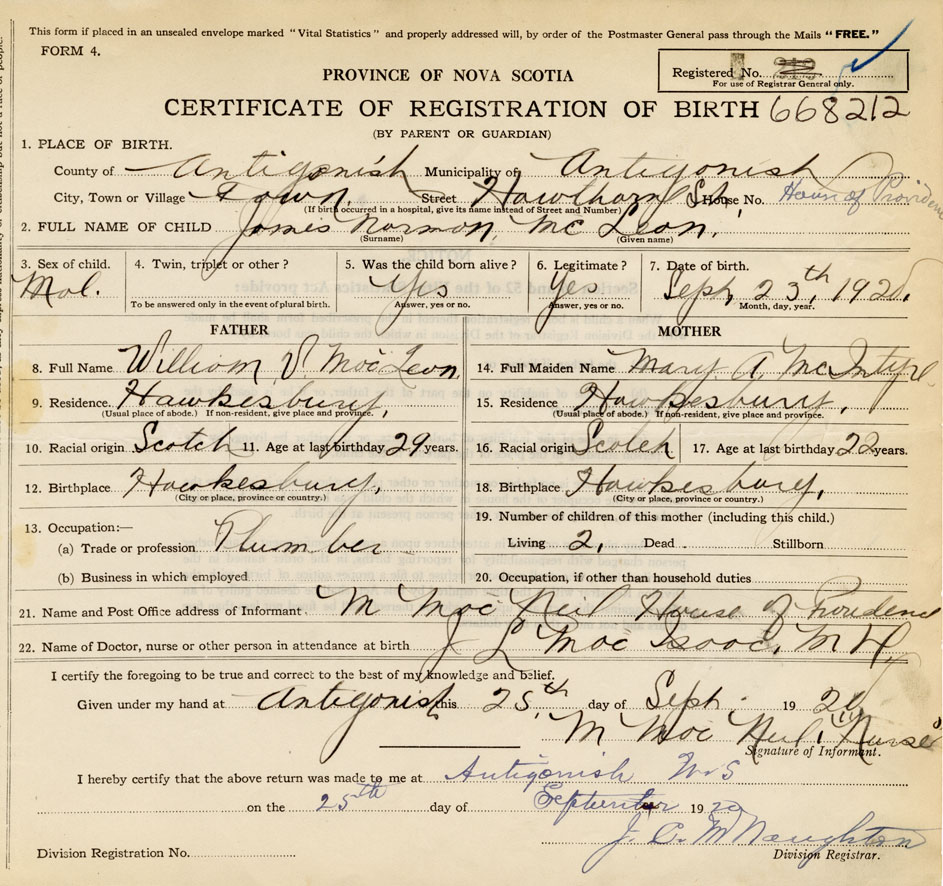 This form if placed in an unsealed envelope marked "Vital Statistics" and properly addressed will, by order of the Postmaster General pass through the Mails "FREE."
FORM 4.
Registered No.
For use of Registrar General only.
PROVINCE OF NOVA SCOTIA
CERTIFICATE OF REGISTRATION OF BIRTH 668212
(BY PARENT OR GUARDIAN)
1. PLACE OF BIRTH.
County of Antigonish Municipality of Antigonish
City, Town or Village Town Street Hawthorn St. House No. House of Providen
(If birth occurred in a hospital, give its name instead of Street and Number)
2. FULL NAME OF CHILD James Norman, Mc Lean.
(Surname) (Given name)
3. Sex of child. 4. Twin, triplet or other ? 5. Was the child born alive ? 6. Legitimate ? 7. Date of birth.
Mal. Yes Yes Sept, 23th, 1920.
To be answered only in the event of plural birth. Answer, yes or no. Answer, yes or no. Month, day, year.
FATHER MOTHER
8. Full Name William V Mac Lean. 14. Full Maiden Name Mary A. McIntyre
9. Residence. Hawkesbury, 15. Residence Hawkesbury,
(Usual place of abode.) If non-resident, give place and province. (Usual place of abode.) If non-resident, give place and province.
10. Racial origin Scotch 11. Age at last birthday 29 years. 16. Racial origin Scotch 17. Age at last birthday 22 years.
12. Birthplace Hawkesbury, 18. Birthplace Hawkesbury,
(City or place, province or country.) (City or place, province or country.)
13. Occupation:— 19. Number of children of this mother (including this child.)
(a) Trade or profession Plumber Living 2, Dead Stillborn
(b) Business in which employed 20. Occupation, if other than household duties
21. Name and Post Office address of Informant M Mac Neil House of Providence
22. Name of Doctor, nurse or other person in attendance at birth J L Mac Isaac, M D,
I certify the foregoing to be true and correct to the best of my knowledge and belief.
Given under my hand at Antigonish this 25th day of Sept. 1920
M Mac Neil, Nurse
Signature of Informant.
I hereby certify that the above return was made to me at Antigonish N.S
on the 25th day of September 1920
J. C. McNaughton
Division Registration No. Division Registrar.